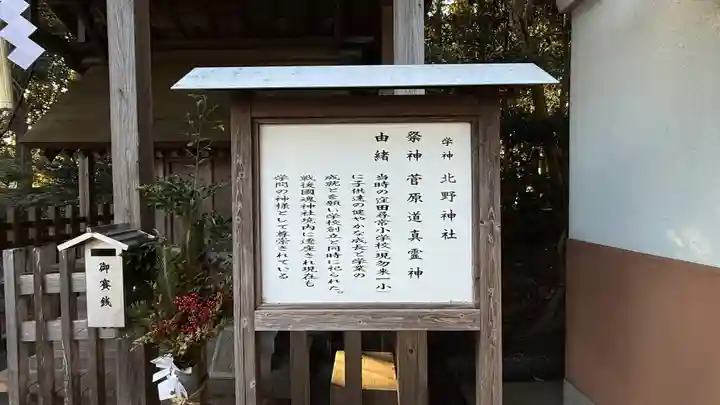 学神 北野神社
祭神 菅原道真霊神
由緒 当時の窪田尋常小学校(現勿来一小)
に子供達の健やかな成長と学業の
成就とを願い学校創立と同時に祀られた。
戦後國魂神社境内に遷座され現在も
学問の神様として尊崇されている
御賽銭